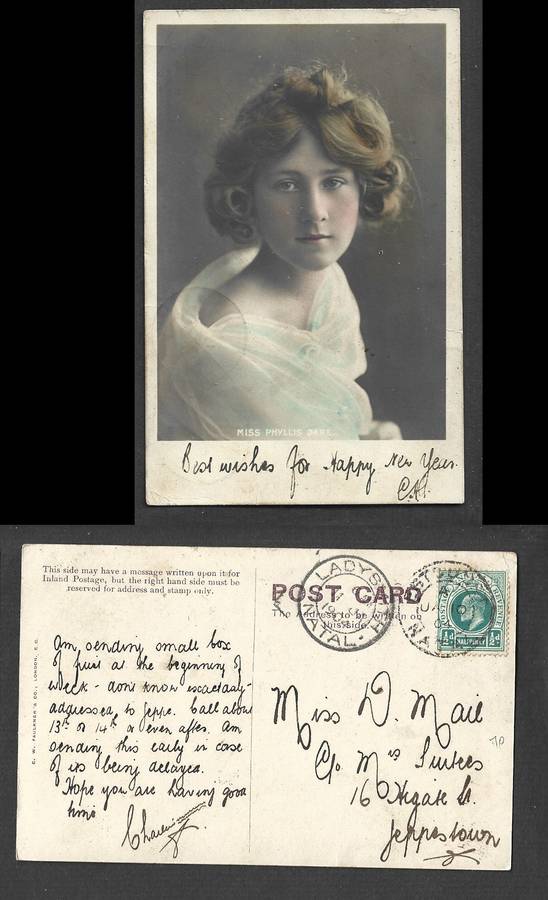 MISS PHYLLIS DARE.
Best wishes for Happy New Year.
This side may have a message written upon it for
Inland Postage, but the right hand side must be
reserved for address and stamp only.
POST CARD
The Address to be written on
this side.
LADYS
NATAL
HALFPENNY
½d ½d
C. W. FAULKNER & CO., LONDON, E.C.
Am sending small box
of fruit at the beginning of
week - don't know exactly
addressed to Jeppe. Call about
13th or 14th or even after. Am
sending this early in case
of its being delayed.
Hope you are having good
time
Charlie
Miss D. Mail
C/o Mrs
16 St.
Jeppestown